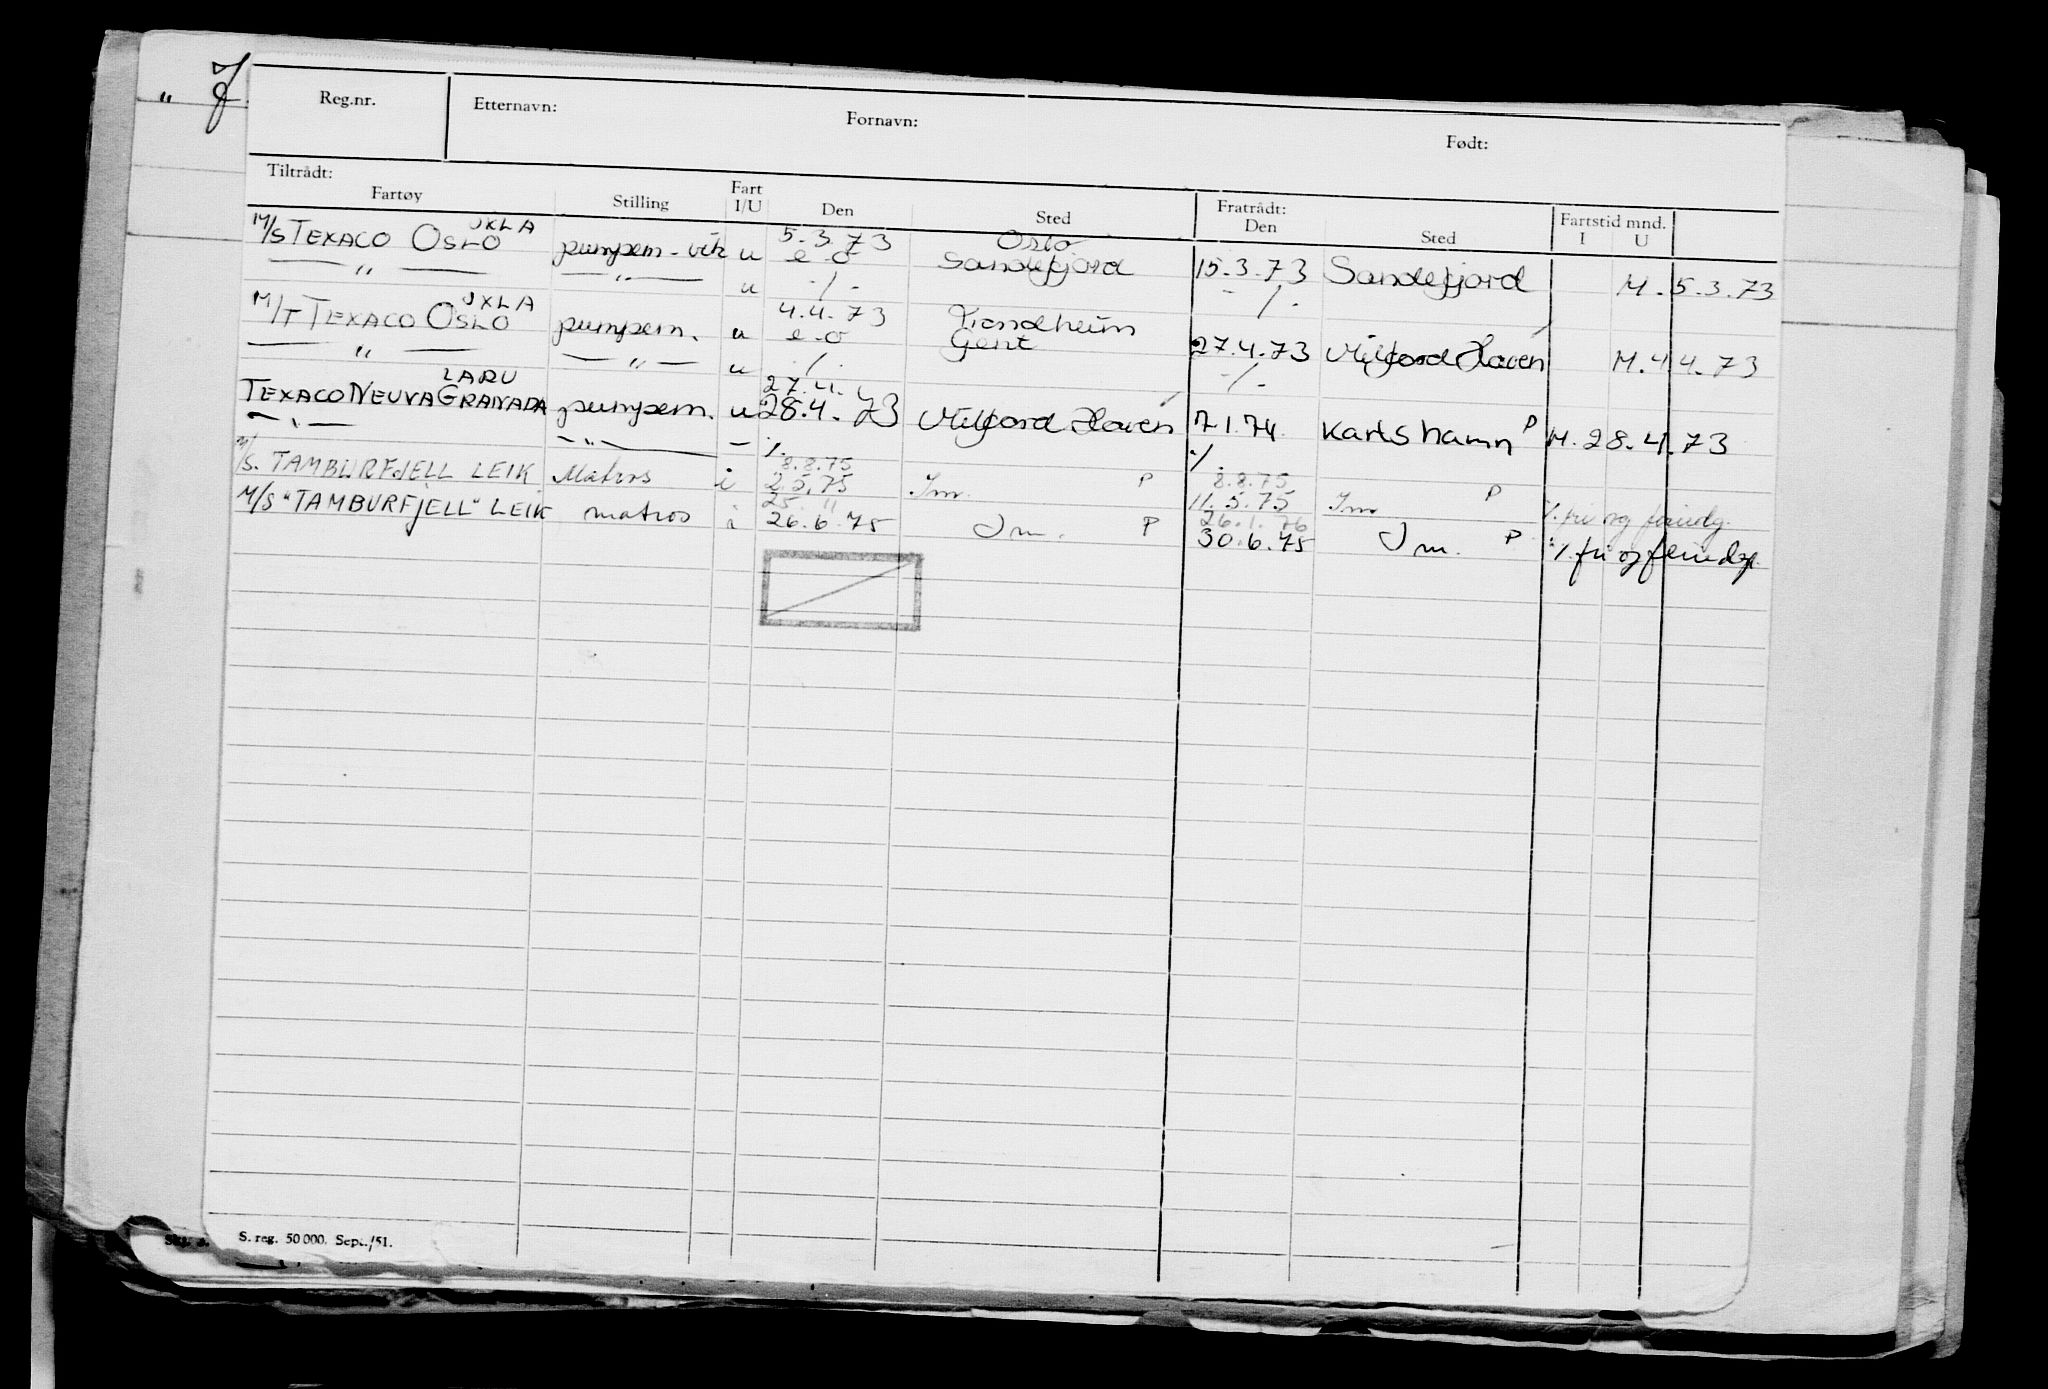 " 7
Reg.nr. Etternavn: Fornavn: Født:
Tiltrådt: Fratrådt: Fartstid mnd.
Fartøy Stilling Fart I/U Den Sted Den Sted I U
JXLA 5.3.73 Oslo
M/S TEXACO OSLO pumpem.-vik u e o Sandefjord 15.3.73 Sandefjord M. 5.3.73
— " — — " — u -/- -/-
JXLA 4.4.73 Trondheim
M/T TEXACO OSLO pumpem. u e o Gent 27.4.73 Milford Haven M. 4.4.73
— " — — " — u -/- -/-
LARU 27.4.
TEXACO NEUVA GRANADA pumpem. u 28.4.73 Milford Haven 7.1.74 Karlshamn P M. 28.4.73
— " — — " — — ·/. ·/.
8.8.75 8.8.75
M/S. TAMBURFJELL LEIK Matros i 2.5.75 Im. P 11.5.75 Im P ·/. fri og feriedg.
25. " 26.1.76
M/S "TAMBURFJELL" LEIK matros i 26.6.75 Im. P 30.6.75 Im. P ·/. fri og feriedg.
S. reg. 50 000. Sept./51.